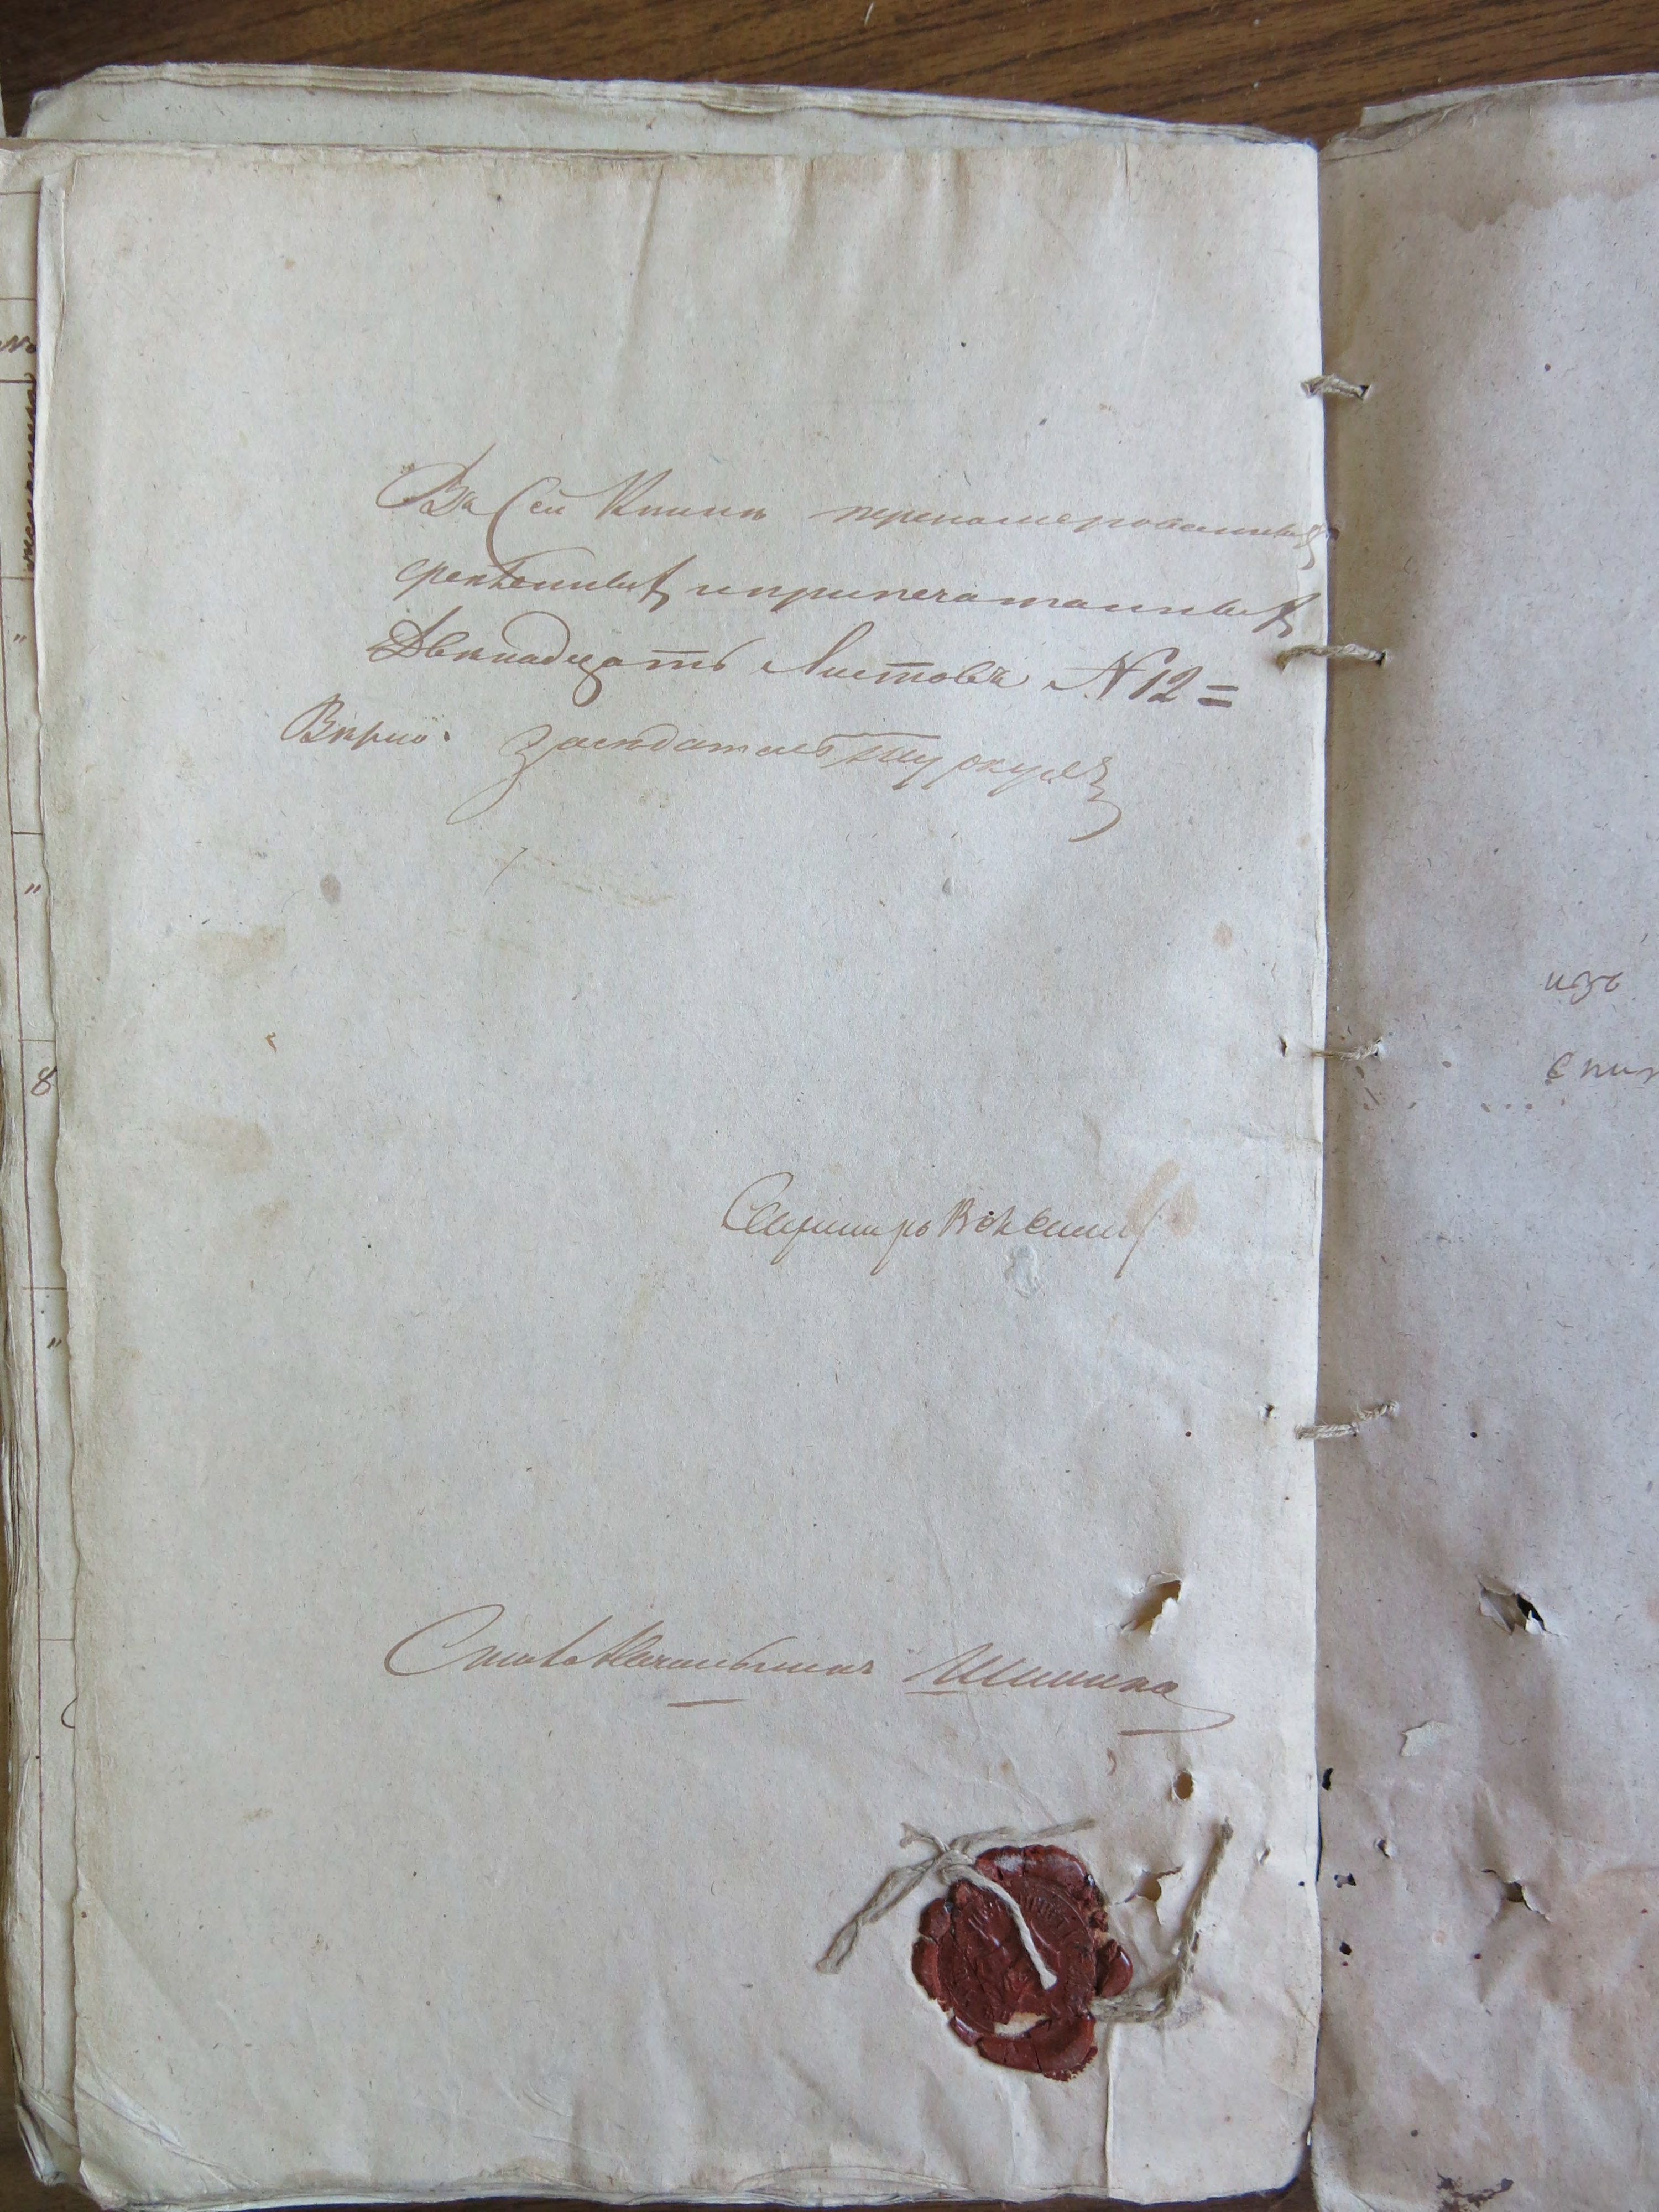 Въ сей Книгѣ перенумерованныхъ
скрѣпленныхъ и припечатанныхъ
Двѣнадцать Листовъ N 12 =
Вѣрно. Засѣдатель
Секретарь
Столоначальникъ Шишка
изъ
8